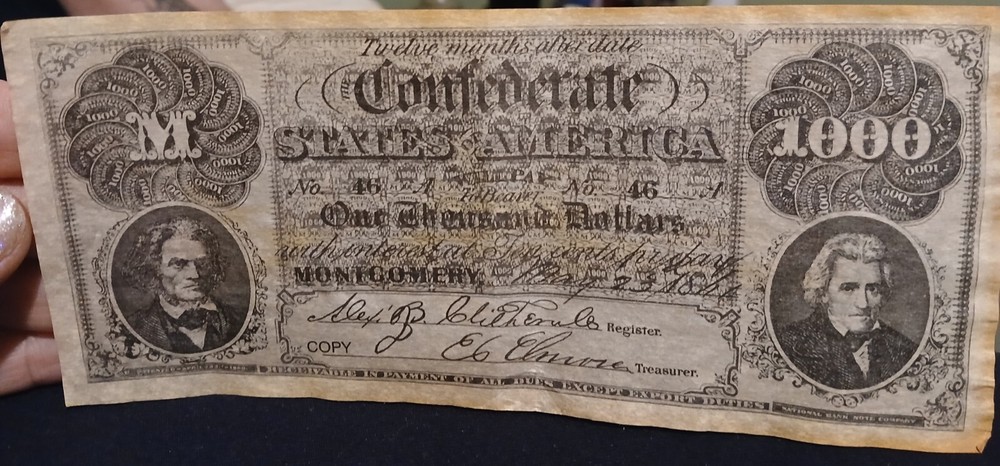 Twelve months after date
The
Confederate
STATES OF AMERICA
WILL PAY
No. 46 A No. 46 A
M
1000
One Thousand Dollars
with interest at Ten cents per day
MONTGOMERY, May 23, 1861
Alex B. Clitherall Register.
COPY
EC Elmore Treasurer.
RECEIVABLE IN PAYMENT OF ALL DUES EXCEPT EXPORT DUTIES
NATIONAL BANK NOTE COMPANY